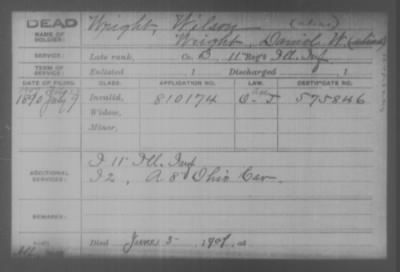 DEAD
Wright, Wilson (alias)
NAME OF SOLDIER: Wright, Daniel W.
SERVICE: Late rank, Co. B, 11" Reg't Ill. Inf
TERM OF SERVICE: Enlisted , 1 Discharged , 1
DATE OF FILING. CLASS. APPLICATION NO. LAW. CERTIFICATE NO.
1890 July 9 Invalid, 810174 575846
Widow,
Minor,
I 11" Ill. Inf
ADDITIONAL SERVICES: I 2, A 8 Ohio Cav.
REMARKS:
Died 5 , 1907, at